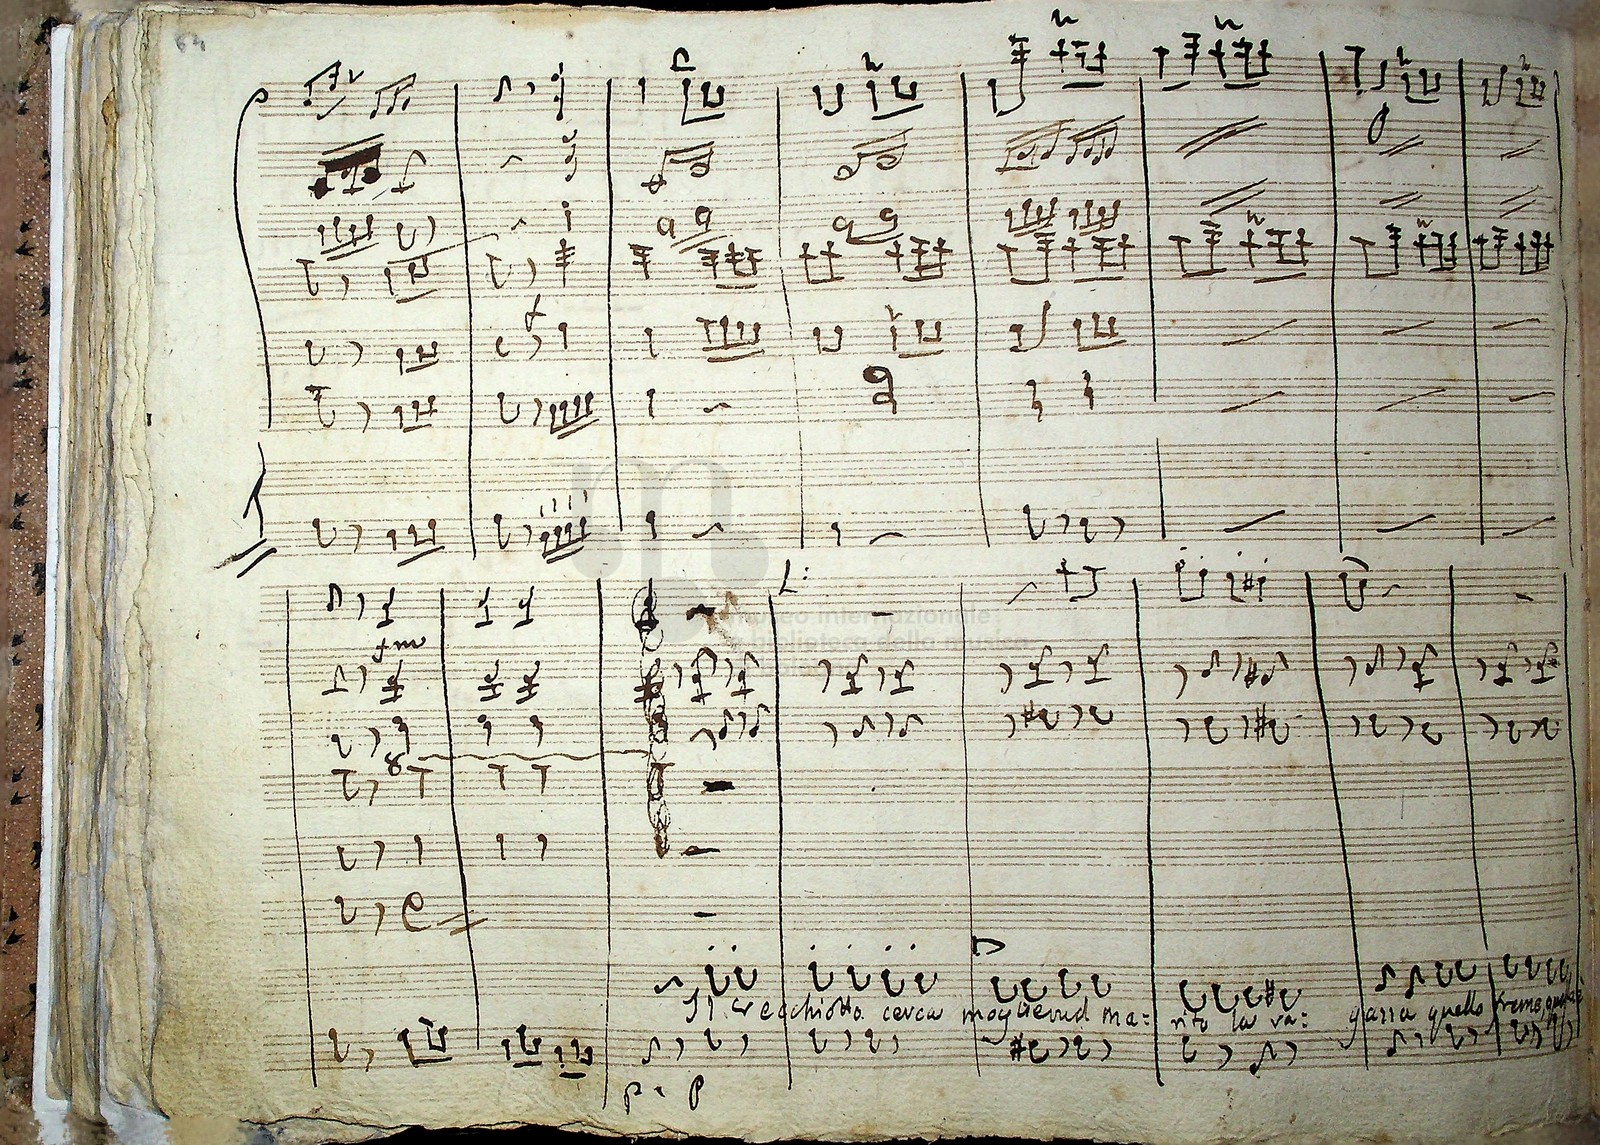 64
L:
fm
8
museo internazionale
e biblioteca della musica
Il vecchiotto cerca moglie vuol ma: rito la ra: gazza quello freme
p. p